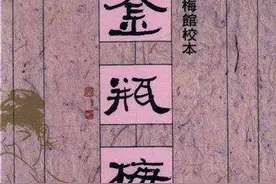 梅館校本
金瓶梅